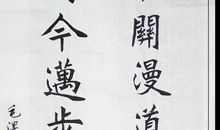 關漫道
今邁步
毛